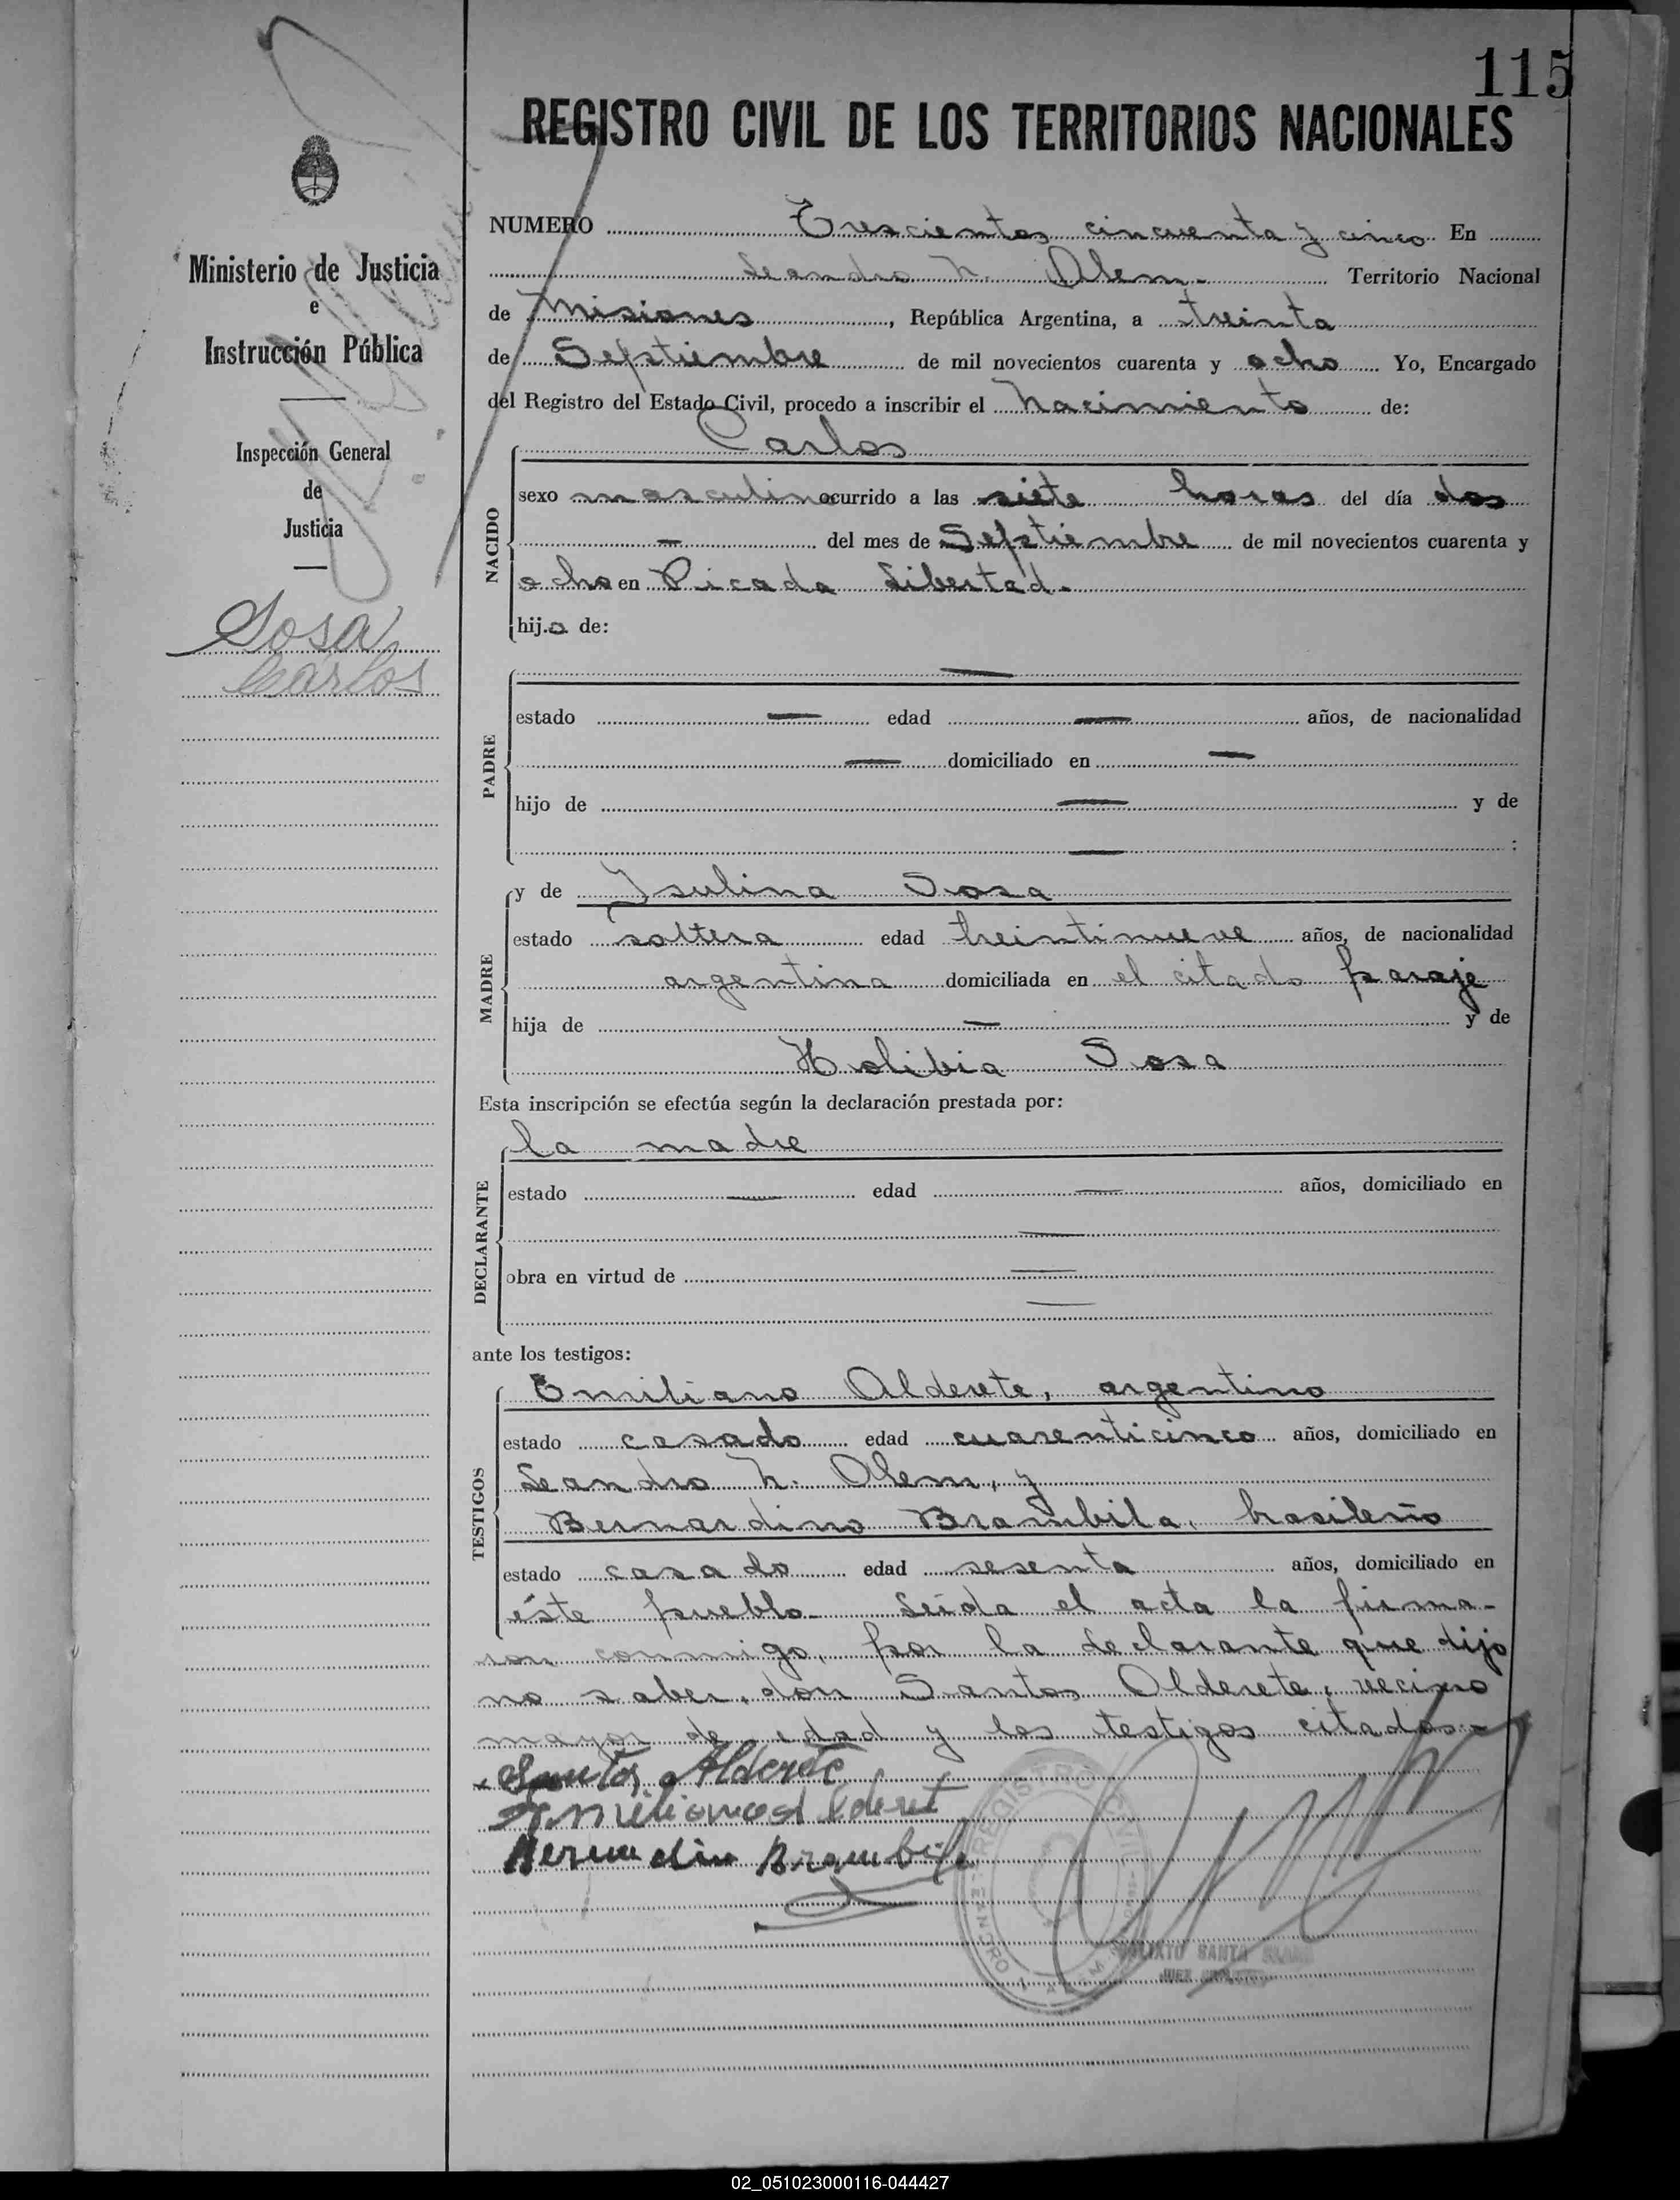 115
REGISTRO CIVIL DE LOS TERRITORIOS NACIONALES
Ministerio de Justicia
e
Instrucción Pública
Inspección General
de
Justicia
Sosa
Carlos
NUMERO Trescientos cincuenta y cinco En
Leandro N. Alem. Territorio Nacional
de Misiones, República Argentina, a treinta
de Septiembre de mil novecientos cuarenta y ocho Yo, Encargado
del Registro del Estado Civil, procedo a inscribir el nacimiento de:
Carlos
NACIDO
sexo masculino ocurrido a las siete horas del día dos
— del mes de Septiembre de mil novecientos cuarenta y
ocho en Picada Libertad.
hijo de:
PADRE
—
estado — edad — años, de nacionalidad
— domiciliado en —
hijo de — y de
— :
MADRE
y de Isulina Sosa
estado soltera edad treintinueve años, de nacionalidad
argentina domiciliada en el citado paraje
hija de — y de
Holibia Sosa
Esta inscripción se efectúa según la declaración prestada por:
DECLARANTE
la madre
estado — edad — años, domiciliado en
—
obra en virtud de —
—
ante los testigos:
TESTIGOS
Emiliano Alderete, argentino
estado casado edad cuarenticinco años, domiciliado en
Leandro N. Alem, y
Bernardino Brambila, brasileño
estado casado edad sesenta años, domiciliado en
éste pueblo. Leida el acta la firma-
ron conmigo, por la declarante que dijo
no saber, don Santos Alderete, vecino
mayor de edad y los testigos citados.-
Santos Alderete
Emiliano Alderet
Bernardino Brambila
REGISTRO CIVIL
LEANDRO N. ALEM
SANTA
JUEZ
02_051023000116-044427